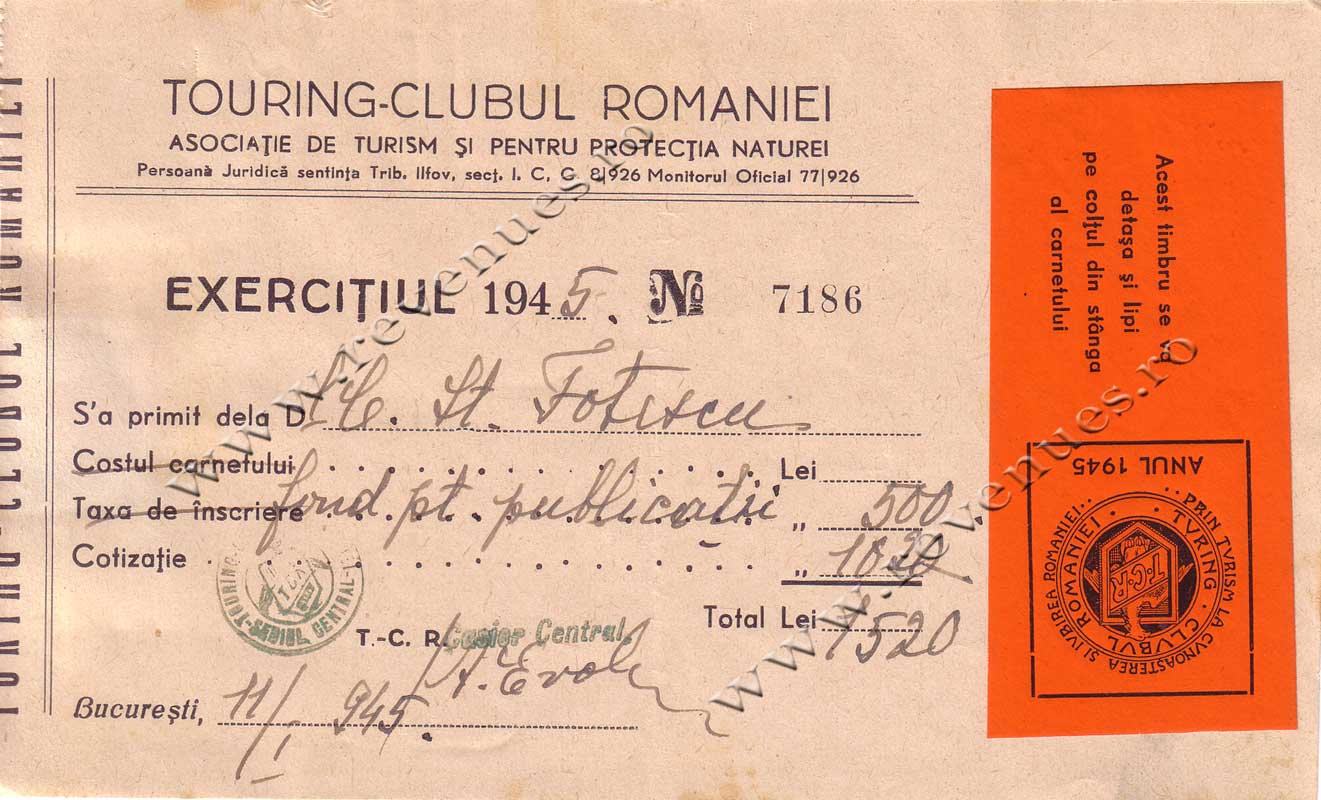 TOURING-CLUBUL ROMANIEI
TOURING-CLUBUL ROMANIEI
ASOCIAȚIE DE TURISM ȘI PENTRU PROTECȚIA NATUREI
Persoană Juridică sentința Trib. Ilfov, secț. I. C, C. 8|926 Monitorul Oficial 77|926
EXERCIȚIUL 1945. No 7186
S'a primit dela Dl C. St. Foțescu
Costul carnetului Lei
Taxa de înscriere fond pt. publicații „ 500
Cotizație „ 1020
Total Lei 1520
T.-C. R. Casier Central
TOURING SEDIUL CENTRAL
București, 11/I 945.
Acest timbru se va
detașa și lipi
pe colțul din stânga
al carnetului
ANUL 1945
PRIN TVRISM LA CVNOAȘTEREA ȘI IVBIREA ROMANIEI
TVRING CLVBVL ROMANIEI
T.C.R
www.revenues.ro
www.revenues.ro